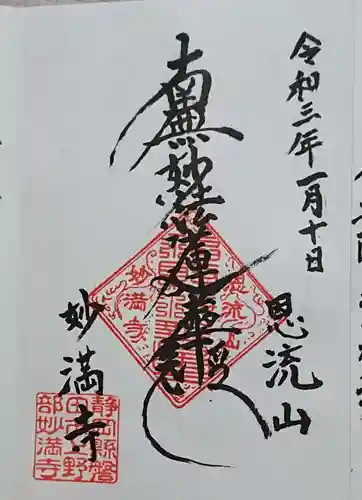 令和三年一月十日
恩流山
南無妙法蓮華経
妙満寺
恩流山
妙満寺
静岡県磐
田市上野
部妙満寺